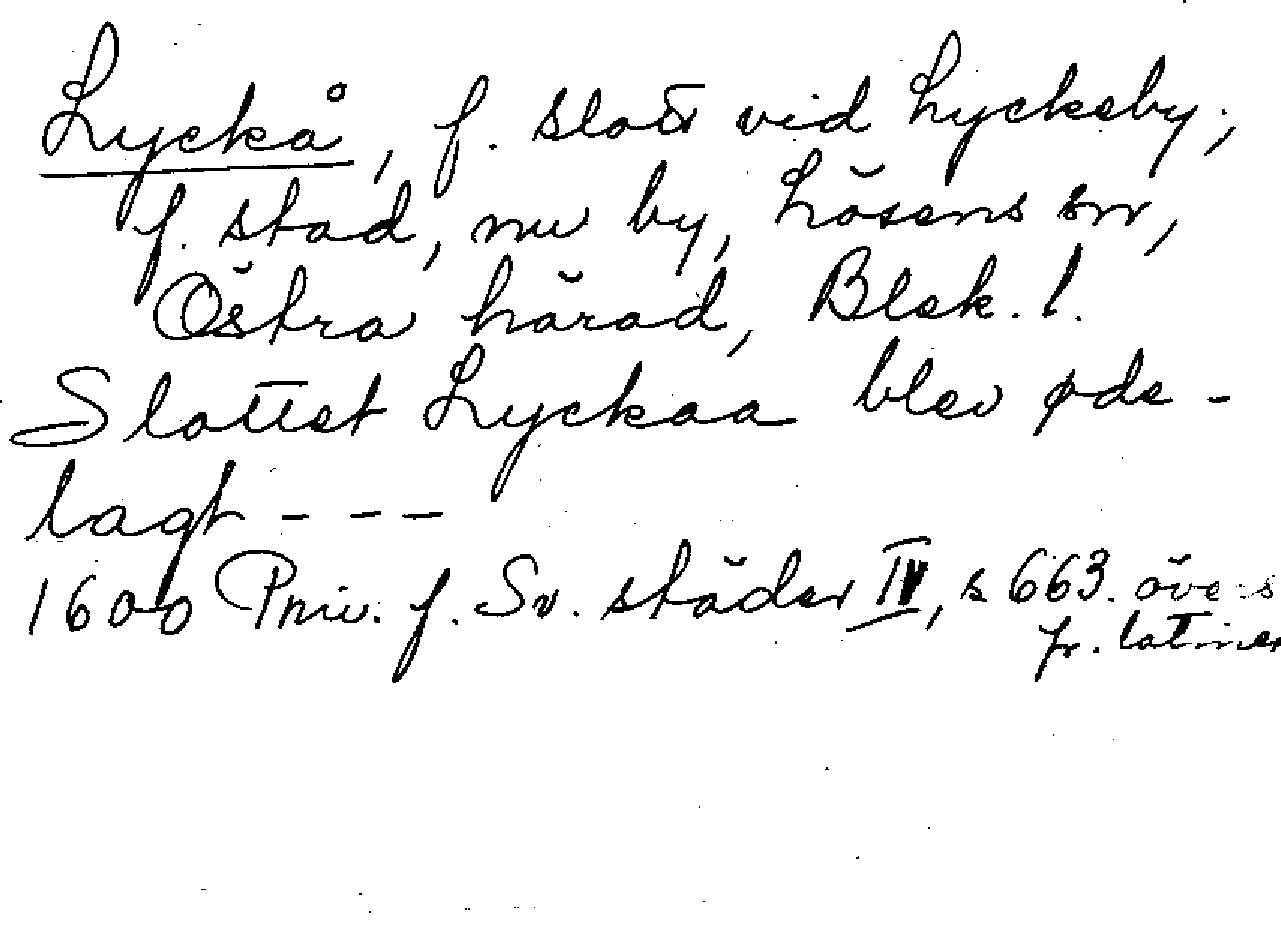 Lyckå, f. slott vid Lyckeby;
f. stad, nu by, Lösens sn,
Östra härad, Blek. l.
Slottet Lyckaa blev øde-
lagt - - -
1600 Priv. f. Sv. städer IV, s 663. övers
fr. latinen